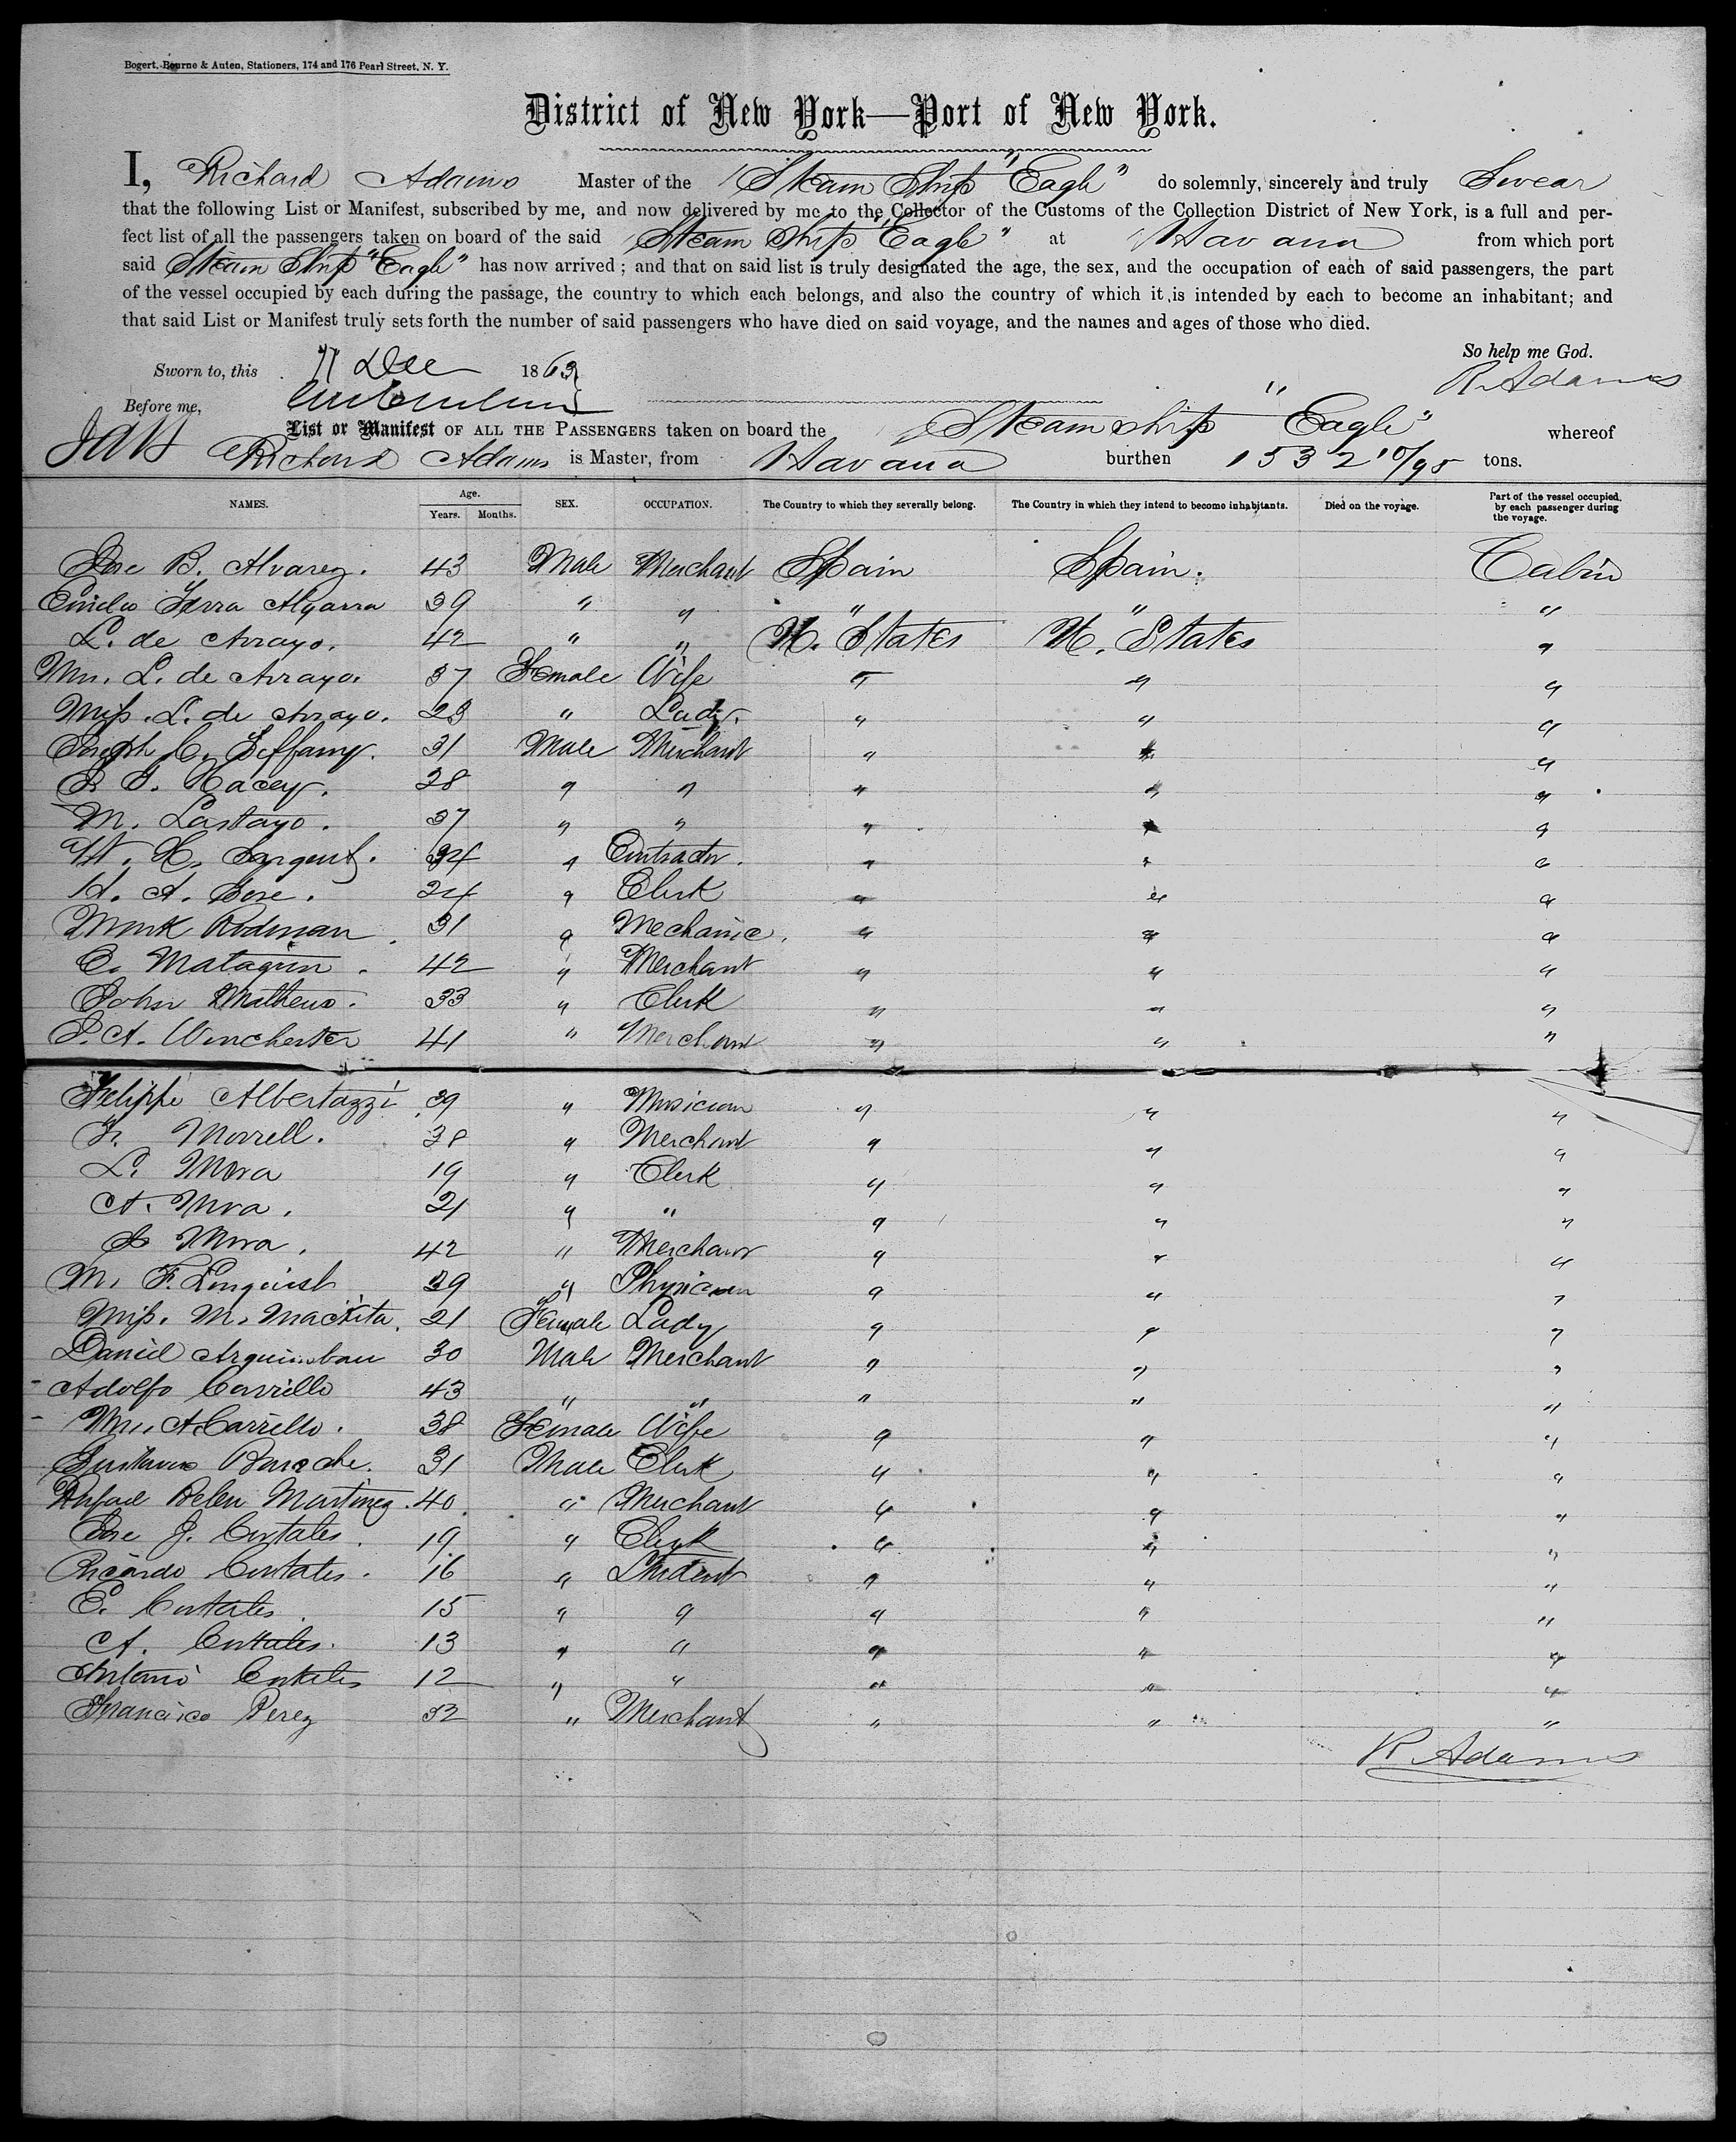 Bogert, Bourne & Auten, Stationers, 174 and 176 Pearl Street, N. Y.
District of New York—Port of New York.
I, Richard Adams Master of the Steam Ship "Eagle" do solemnly, sincerely and truly Swear
that the following List or Manifest, subscribed by me, and now delivered by me to the Collector of the Customs of the Collection District of New York, is a full and per-
fect list of all the passengers taken on board of the said Steam Ship "Eagle" at Havana from which port
said Steam Ship "Eagle" has now arrived; and that on said list is truly designated the age, the sex, and the occupation of each of said passengers, the part
of the vessel occupied by each during the passage, the country to which each belongs, and also the country of which it is intended by each to become an inhabitant; and
that said List or Manifest truly sets forth the number of said passengers who have died on said voyage, and the names and ages of those who died.
So help me God.
Sworn to, this 11 Dec 1863 R. Adams
Before me,
List or Manifest OF ALL THE PASSENGERS taken on board the Steam Ship "Eagle" whereof
Richard Adams is Master, from Havana burthen 1532 10/95 tons.
NAMES. Age. Years. Months. SEX. OCCUPATION. The Country to which they severally belong. The Country in which they intend to become inhabitants. Died on the voyage. Part of the vessel occupied by each passenger during the voyage.
Jose B. Alvarez. 43 Male Merchant Spain Spain. Cabin
Emilio Algarra 39 " " " " "
L. de Arrayo. 42 " " U. States U. States "
Mrs. L. de Arrayo. 37 Female Wife " " "
Miss. L. de Arrayo. 23 " Lady. " " "
Joseph C. 31 Male Merchant " " "
28 " " " " "
M. Lastayo. 37 " " " " "
W. H. Sargent. 34 " Contractor. " " "
H. A. 24 " Clerk " " "
Mark Rodman 31 " Mechanic. " " "
E. 42 " Merchant " " "
John Mathews. 33 " Clerk " " "
P. A. Winchester 41 " Merchant " " "
Felippe Albertazzi 39 " Musician " " "
F. Morrell. 38 " Merchant " " "
L. Mora 19 " Clerk " " "
A. Mora. 21 " " " " "
J. Mora. 42 " Merchant " " "
M. F. Lonquist 39 " Physician " " "
Miss. M. 21 Female Lady " " "
Daniel Arguimbau 30 Male Merchant " " "
Adolfo Carrillo 43 " " " " "
Mrs. A. Carrillo. 38 Female Wife " " "
Gustavus 31 Male Clerk " " "
Rafael Belen Martinez. 40 " Merchant " " "
Jose J. Costales. 19 " Clerk " " "
Ricardo Costales. 16 " Student " " "
E. Costales. 15 " " " " "
A. Costales. 13 " " " " "
Antonio Costales 12 " " " " "
Francisco Perez 32 " Merchant " " "
R. Adams